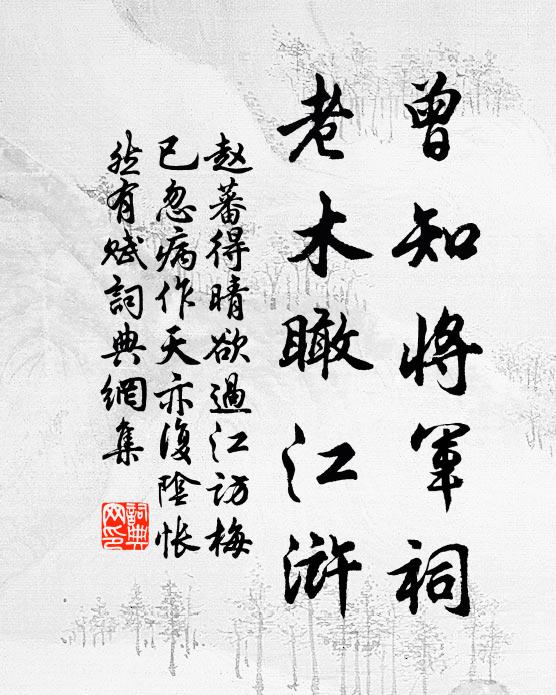 曾知將軍祠
老木瞰江滸
赵蕃得晴欲過江訪梅
已忽病作天亦復陰悵
然有赋詞典網集
詞典
网印